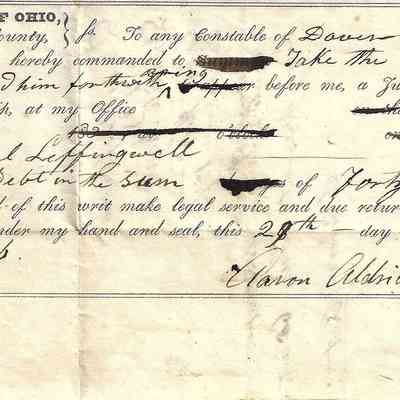 OF OHIO,
ounty, } ss. To any Constable of Dover
hereby commanded to Take the
d him forthwith bring before me, a Ju
p, at my Office
l Leffingwell
Debt in the sum of Forty
d of this writ make legal service and due retur
nder my hand and seal, this 29th day
Aaron Aldric